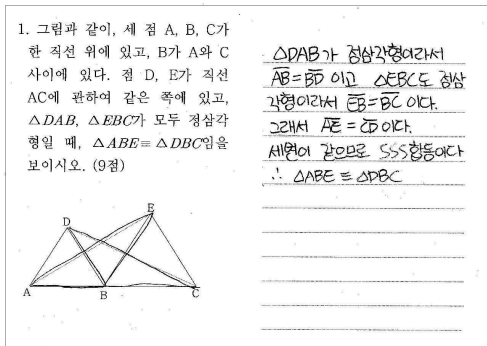 1. 그림과 같이, 세 점 A, B, C가
한 직선 위에 있고, B가 A와 C
사이에 있다. 점 D, E가 직선
AC에 관하여 같은 쪽에 있고,
△DAB, △EBC가 모두 정삼각
형일 때, △ABE≡△DBC임을
보이시오. (9점)
△DAB가 정삼각형이라서
AB=BD 이고 △EBC도 정삼
각형이라서 EB=BC 이다.
그래서 AE=CD이다.
세변이 같으므로 SSS합동이다
∴ △ABE ≡ △DBC
E
D
A B C